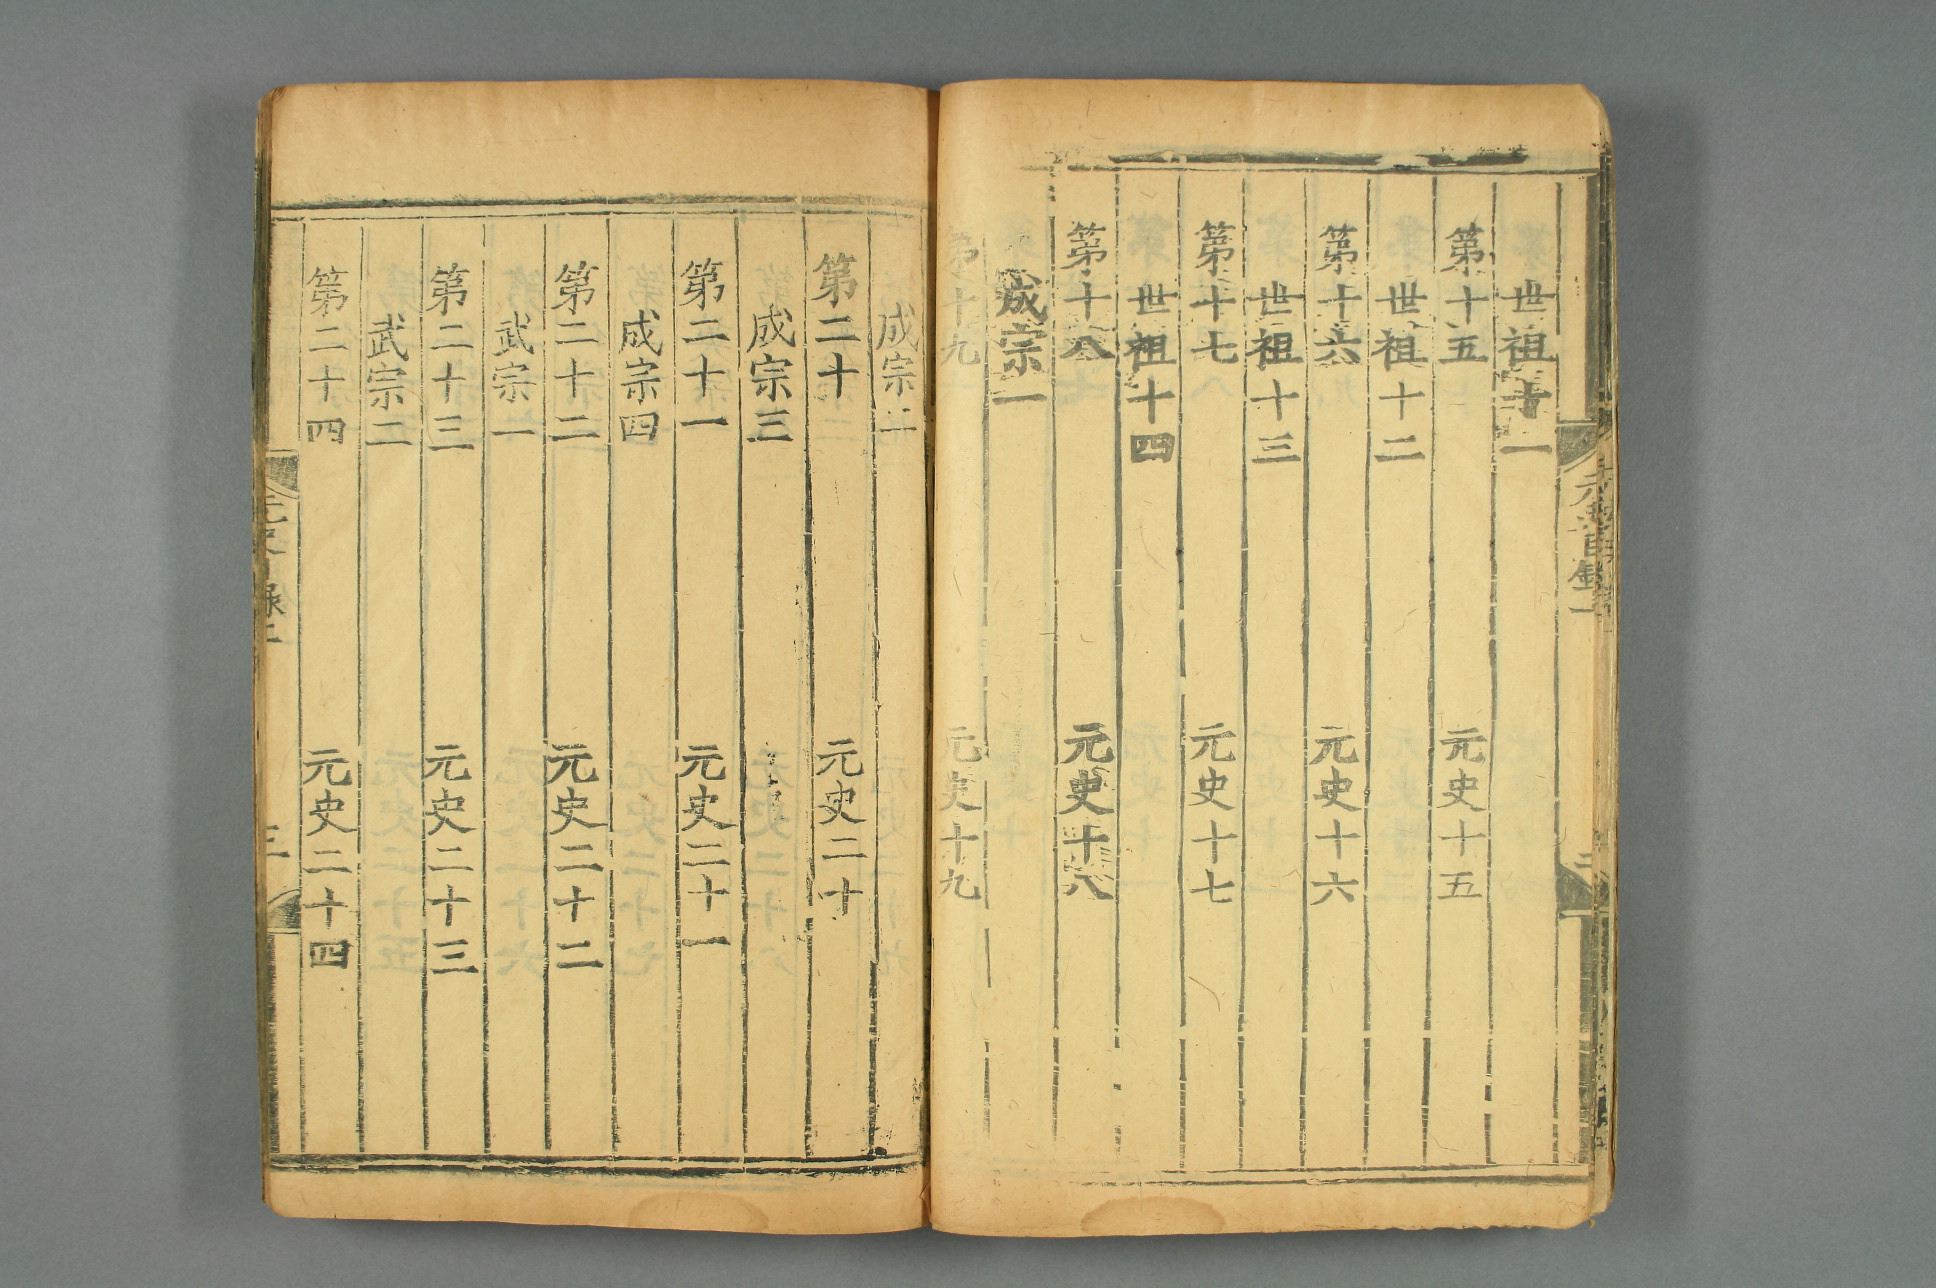 元史目錄一
世祖十一
第十五 元史十五
世祖十二
第十六 元史十六
世祖十三
第十七 元史十七
世祖十四
第十八 元史十八
成宗一
第十九 元史十九
成宗二
第二十 元史二十
成宗三
第二十一 元史二十一
成宗四
第二十二 元史二十二
武宗一
第二十三 元史二十三
武宗二
第二十四 元史二十四